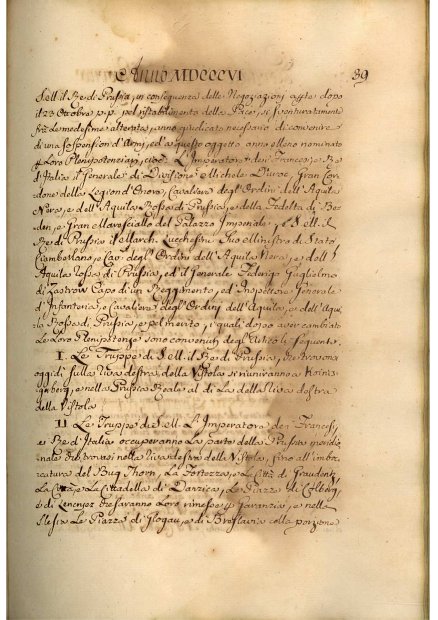 Anno MDCCCVI 39
S. M. il Re di Prussia, in conseguenza delle Negoziazioni apte dopo
il 23 Ottobre p. p. pel ristabilimento della Pace, si sventuratamente
fra Le medesime alterata, anno giudicato necessario di convenire
di una sospension d'Armi, ed a questo oggetto anno eletto nominato
p Loro Plenipotenziarj, cioè. L'Imperatore dei Francesi, e Re
d'Italia il Generale di Divisione Michele Duroc, Gran Cor-
done della Legion d'Onore, Cavaliere degl'Ordini dell'Aquila
Nera, e dell'Aquila Rossa di Prussia, e della Fedeltà di Ba-
den, e Gran Maresciallo del Palazzo Imperiale; e S. M. il
Re di Prussia il March. Lucchesini Suo Ministro di Stato
Ciambellano, e Cav. degl'Ordini dell'Aquila Nera, e dell'
Aquila rossa di Prussia, ed il Generale Federigo Guglielmo
di Zastrow Capo di un Reggimento, ed Inspettore Generale
d'Infanteria, e Cavaliere degl'Ordini dell'Aquila, e dell'Aqui-
la Rossa di Prussia, e pel merito, i quali dopo aver cambiato
Le Loro Plenipotenze sono convenuti degl'Articoli seguenti.
I. Le Truppe di S. M. il Re di Prussia, che trovansi
oggidì sulla riva destra della Vistola si riuniranno a Konis-
gsberg, e nella Prussia Reale al di là della riva destra
della Vistola
II Le Truppe di S. M. L'Imperatore dei Francesi,
e Re d'Italia occuperanno La parte della Prussia meridio-
nale che trovasi nella riva destra della Vistola, fino all'imboc-
catura del Bug Thorn, La Fortezza, e La Città di Graudentz,
La Città e La Cittadella di Danzica, Le Piazze di Colberg,
e di Lenczyc che saranno Loro rimesse p Garanzia, e nella
Slesia Le Piazze di Glogau, e di Breslavia colla porzione